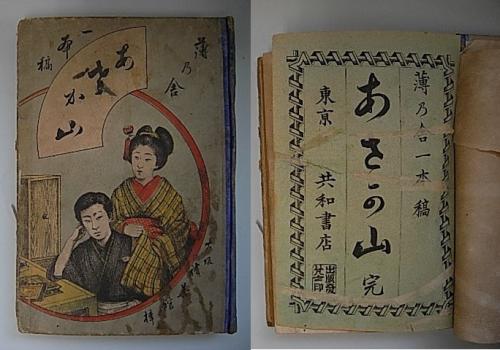 薄乃舎
一本稿
あさか山
薄乃舎一本稿
あさか山 完
東京 共和書店